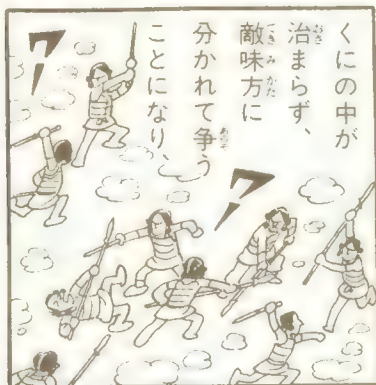 くにの中が
治まらず、
敵味方に
分かれて争う
ことになり、
ワー
ワー